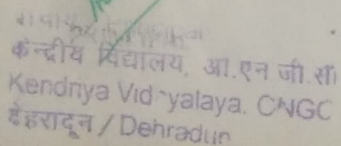 केन्द्रीय विद्यालय, ओ.एन.जी.सी
Kendriya Vidyalaya, ONGC
देहरादून / Dehradun